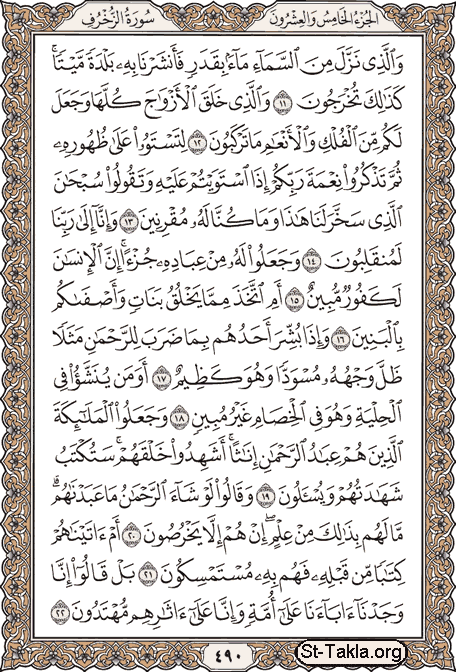 الجزء الخامس والعشرون سورة الزخرف
وَالَّذِي نَزَّلَ مِنَ السَّمَاءِ مَاءً بِقَدَرٍ فَأَنشَرْنَا بِهِ بَلْدَةً مَّيْتًا
كَذَٰلِكَ تُخْرَجُونَ ١١ وَالَّذِي خَلَقَ الْأَزْوَاجَ كُلَّهَا وَجَعَلَ
لَكُم مِّنَ الْفُلْكِ وَالْأَنْعَامِ مَا تَرْكَبُونَ ١٢ لِتَسْتَوُوا عَلَىٰ ظُهُورِهِ
ثُمَّ تَذْكُرُوا نِعْمَةَ رَبِّكُمْ إِذَا اسْتَوَيْتُمْ عَلَيْهِ وَتَقُولُوا سُبْحَانَ
الَّذِي سَخَّرَ لَنَا هَٰذَا وَمَا كُنَّا لَهُ مُقْرِنِينَ ١٣ وَإِنَّا إِلَىٰ رَبِّنَا
لَمُنقَلِبُونَ ١٤ وَجَعَلُوا لَهُ مِنْ عِبَادِهِ جُزْءًا إِنَّ الْإِنسَانَ
لَكَفُورٌ مُّبِينٌ ١٥ أَمِ اتَّخَذَ مِمَّا يَخْلُقُ بَنَاتٍ وَأَصْفَاكُم
بِالْبَنِينَ ١٦ وَإِذَا بُشِّرَ أَحَدُهُم بِمَا ضَرَبَ لِلرَّحْمَٰنِ مَثَلًا
ظَلَّ وَجْهُهُ مُسْوَدًّا وَهُوَ كَظِيمٌ ١٧ أَوَمَن يُنَشَّأُ فِي
الْحِلْيَةِ وَهُوَ فِي الْخِصَامِ غَيْرُ مُبِينٍ ١٨ وَجَعَلُوا الْمَلَائِكَةَ
الَّذِينَ هُمْ عِبَادُ الرَّحْمَٰنِ إِنَاثًا أَشَهِدُوا خَلْقَهُمْ سَتُكْتَبُ
شَهَادَتُهُمْ وَيُسْأَلُونَ ١٩ وَقَالُوا لَوْ شَاءَ الرَّحْمَٰنُ مَا عَبَدْنَاهُم
مَّا لَهُم بِذَٰلِكَ مِنْ عِلْمٍ إِنْ هُمْ إِلَّا يَخْرُصُونَ ٢٠ أَمْ آتَيْنَاهُمْ
كِتَابًا مِّن قَبْلِهِ فَهُم بِهِ مُسْتَمْسِكُونَ ٢١ بَلْ قَالُوا إِنَّا
وَجَدْنَا آبَاءَنَا عَلَىٰ أُمَّةٍ وَإِنَّا عَلَىٰ آثَارِهِم مُّهْتَدُونَ ٢٢
٤٩٠
St-Takla.org